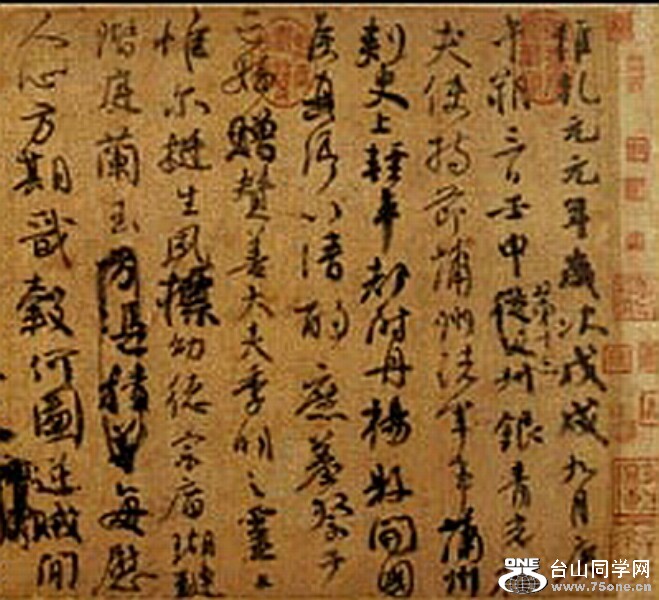 維乾元元年歲次戊戌九月庚
午朔三日壬申第十三銀青光
夫使持節蒲州諸軍事蒲州
刺史上輕車都尉丹楊縣開國
侯真卿以清酌庶羞祭于
亡姪贈贊善大夫季明之靈曰
惟爾挺生夙標幼德宗廟瑚璉
階庭蘭玉每慰
人心方期戩穀何圖逆賊閒
ONE
台山同学网
www.75one.cn